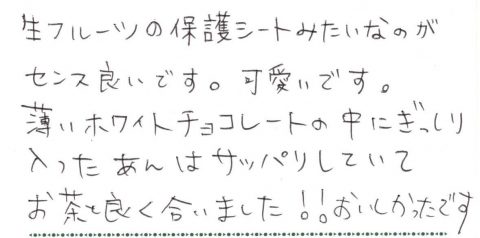 生フルーツの保護シートみたいなのが
センス良いです。可愛いです。
薄いホワイトチョコレートの中にぎっしり
入ったあんはサッパリしていて
お茶と良く合いました!!おいしかったです